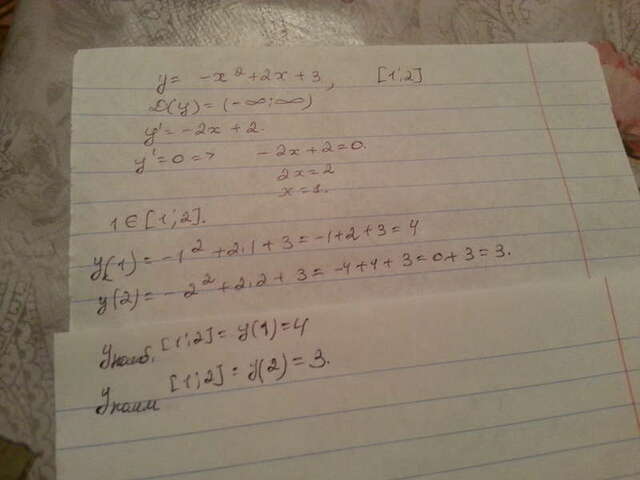 y = -x² + 2x + 3, [1;2]
D(y) = (-∞;∞)
y' = -2x + 2.
y' = 0 => -2x + 2 = 0.
2x = 2
x = 1.
1 ∈ [1;2].
y(1) = -1² + 2·1 + 3 = -1 + 2 + 3 = 4
y(2) = -2² + 2·2 + 3 = -4 + 4 + 3 = 0 + 3 = 3.
yнаиб. [1;2] = y(1) = 4
yнаим [1;2] = y(2) = 3.